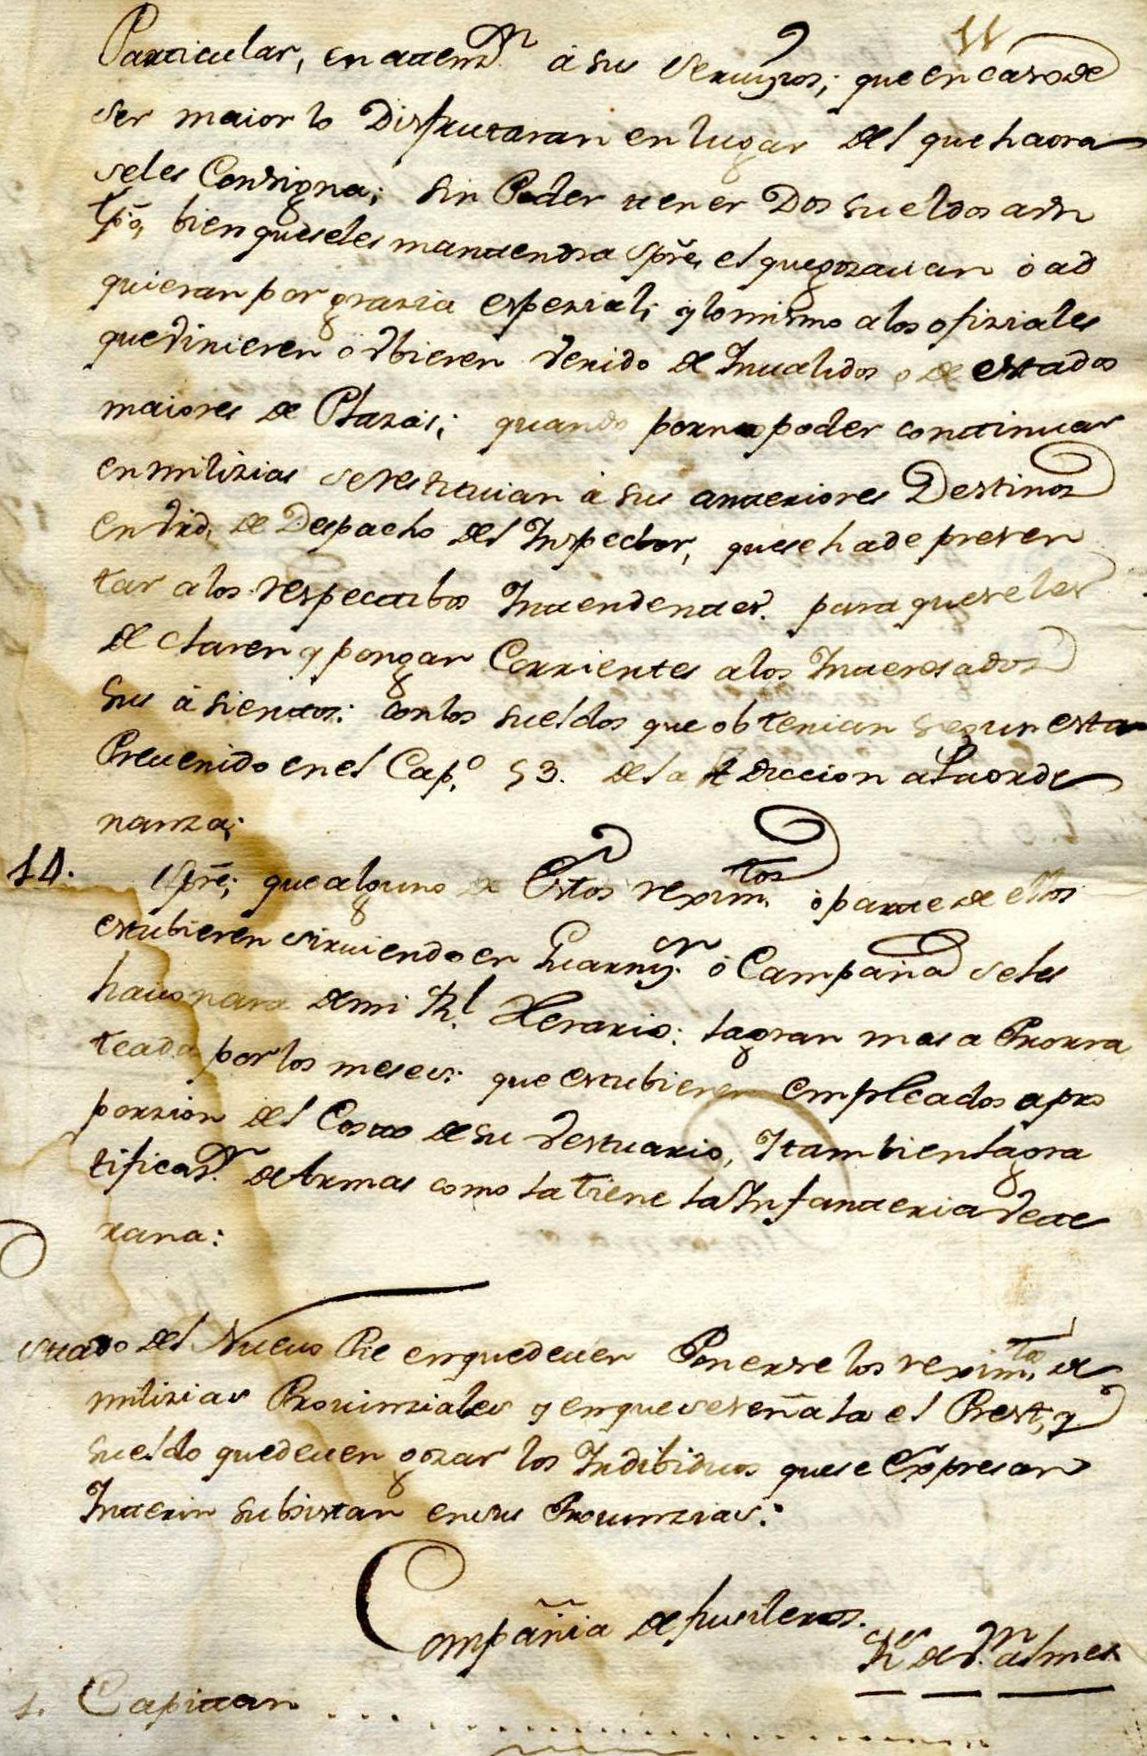 11
Particular, en attenz.on á sus Servizios; que en caso de
ser maior lo Disfrutaran en lugar del que haora
seles Consigna; sin Poder tener Dos sueldos aun
tpo, bien que seles mantendra spre, el que gozauan o ad
quieran por grazia espezial; y lo mismo a los ofiziales
que vinieren ó vbieren venido de Inualidos o de estados
maiores de Plazas; quando por no poder continuar
en milizias se restituian á sus anteriores Destinos
en vrd. de Despacho del Inspector, que se ha de presen
tar a los respectibos Intendentes. para que se les
de claren y pongan Corrientes a los Interesados
sus ásientos: con los sueldos que obtenian segun esta
Preuenido en el Cap.o 53. de la Adiccion a la orde
nanza;
14. Spre; que alguno de Estos rexim.tos ó parte de ellos
estubieren siruiendo en Guarniz.on ó Campaña se les
hauonara de mi Rl. Herario: la gran masa Prorra
teada por los meses: que estubieren empleados a pro
porzion del Costo de su vestuario, I tambien la gra
tificaz.on de Armas como la tiene la Infanteria vete
rana:
stado del Nueuo Pie en que deuen Ponerse los rexim.tos de
milizias Prouinziales y en que se señala el Prest, y
sueldo que deuen gozar los Indibiduos que se Expresan
Interin subsistan en sus Prouinzias:
Compañia de fusileros.
Rs de v.on al mes
1. Capitan . . . . . . . . . . . . . . . . . . . . .